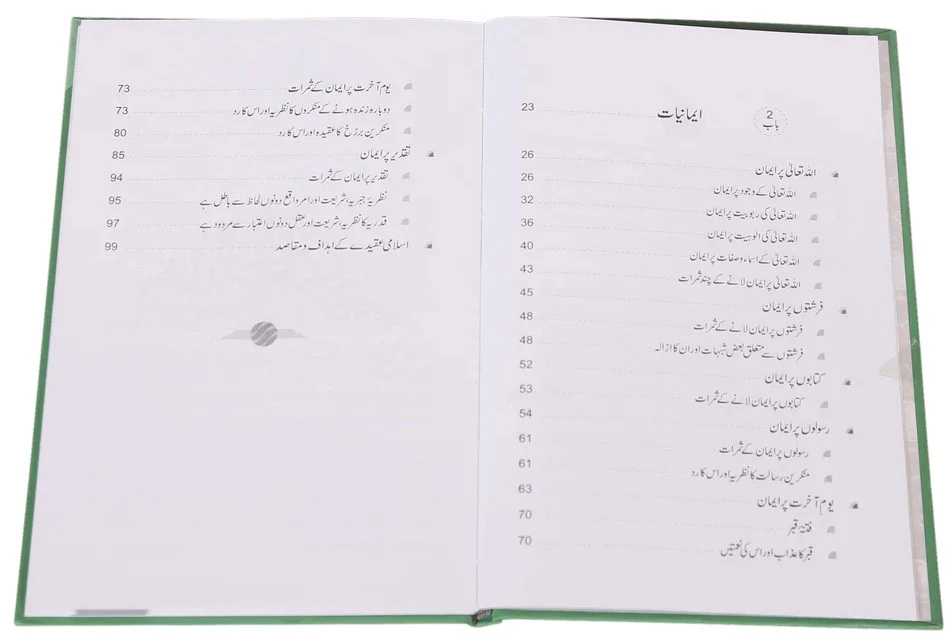 باب 2 ایمانیات 23
اللہ تعالیٰ پر ایمان 26
اللہ تعالیٰ کے وجود پر ایمان 26
اللہ تعالیٰ کی ربوبیت پر ایمان 32
اللہ تعالیٰ کی الوہیت پر ایمان 36
اللہ تعالیٰ کے اسماء و صفات پر ایمان 40
اللہ تعالیٰ پر ایمان لانے کے چند ثمرات 43
فرشتوں پر ایمان 45
فرشتوں پر ایمان لانے کے ثمرات 48
فرشتوں سے متعلق بعض شبہات اور ان کا ازالہ 48
کتابوں پر ایمان 52
کتابوں پر ایمان لانے کے ثمرات 53
رسولوں پر ایمان 54
رسولوں پر ایمان کے ثمرات 61
منکرین رسالت کا نظریہ اور اس کا رد 61
یوم آخرت پر ایمان 63
فتنۂ قبر 70
قبر کا عذاب اور اس کی نعمتیں 70
یوم آخرت پر ایمان کے ثمرات 73
دوبارہ زندہ ہونے کے منکروں کا نظریہ اور اس کا رد 73
منکرین برزخ کا عقیدہ اور اس کا رد 80
تقدیر پر ایمان 85
تقدیر پر ایمان کے ثمرات 94
نظریۂ جبریہ، شریعت اور امر واقع دونوں لحاظ سے باطل ہے 95
قدریہ کا نظریہ، شریعت اور عقل دونوں اعتبار سے مردود ہے 97
اسلامی عقیدے کے اہداف و مقاصد 99